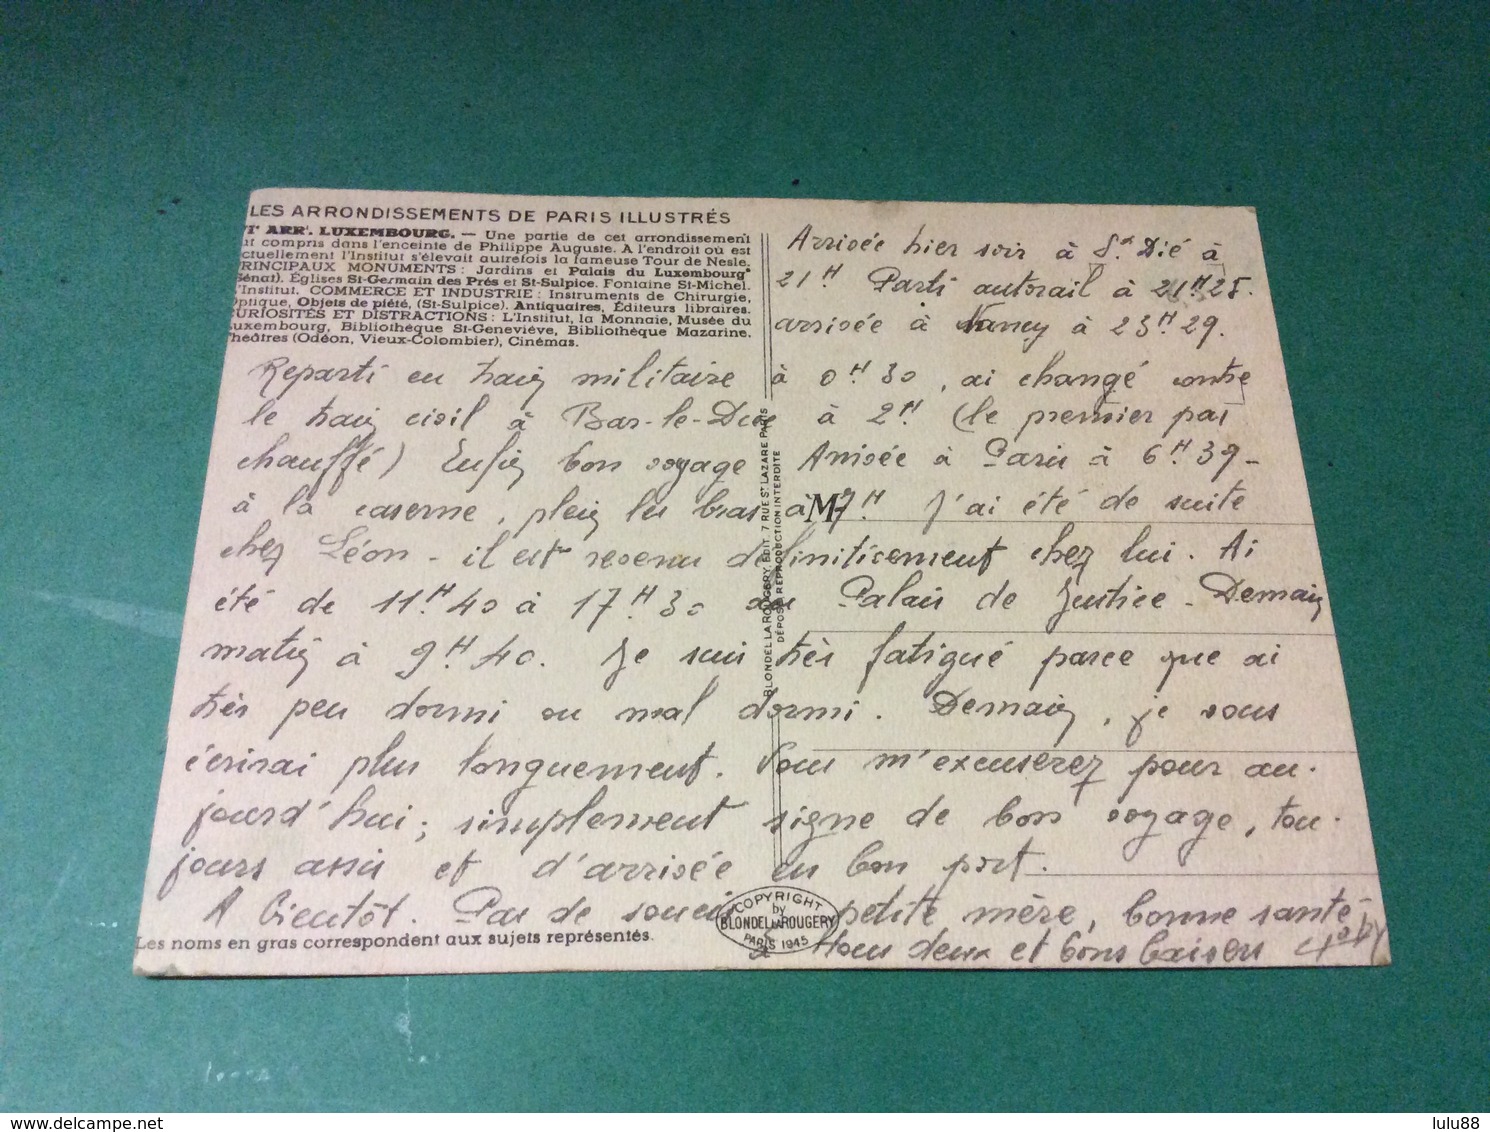 LES ARRONDISSEMENTS DE PARIS ILLUSTRÉS
VIᵉ ARRᵗ. LUXEMBOURG. — Une partie de cet arrondissement
est compris dans l'enceinte de Philippe Auguste. A l'endroit où est
actuellement l'Institut s'élevait autrefois la fameuse Tour de Nesle.
PRINCIPAUX MONUMENTS : Jardins et Palais du Luxembourg
(Sénat). Églises St-Germain des Prés et St-Sulpice. Fontaine St-Michel.
L'Institut. COMMERCE ET INDUSTRIE : Instruments de Chirurgie,
Optique, Objets de piété, (St-Sulpice). Antiquaires, Éditeurs libraires.
CURIOSITÉS ET DISTRACTIONS : L'Institut, la Monnaie, Musée du
Luxembourg, Bibliothèque St-Geneviève, Bibliothèque Mazarine.
Théâtres (Odéon, Vieux-Colombier), Cinémas.
Arrivée hier soir à St Dié à
21H Parti autorail à 21H25.
arrivée à Nancy à 23H29.
Reparti en train militaire à 0H30, ai changé contre
le train civil à Bar-le-Duc à 2H (le premier pas
chauffé) Enfin bon voyage Arrivée à Paris à 6H39 -
à la caserne, plein les bras à M 7H J'ai été de suite
chez Léon - il est revenu définitivement chez lui. Ai
été de 11H40 à 17H30 au Palais de Justice - Demain
matin à 9H40. Je suis très fatigué parce que ai
très peu dormi ou mal dormi. Demain, je vous
écrirai plus longuement. Vous m'excuserez pour au-
jourd'hui ; simplement signe de bon voyage, tou-
jours assis et d'arrivée en bon port.
A bientôt. Pas de soucis petite mère, bonne santé
à tous deux et bons baisers
BLONDEL LA ROUGERY, EDIT. 7 RUE St LAZARE PARIS
DÉPOSÉ REPRODUCTION INTERDITE
COPYRIGHT
by
BLONDEL LA ROUGERY
PARIS 1945
Les noms en gras correspondent aux sujets représentés.
delcampe.net
lulu88